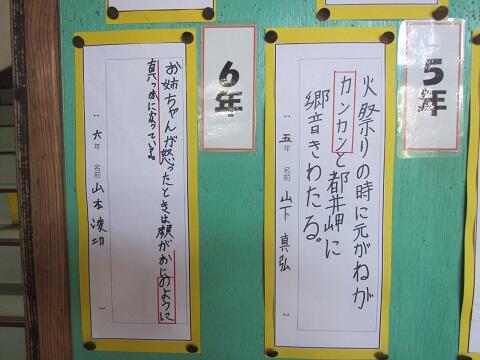 5年
火祭りの時に元がねが
カンカンと都井岬に
響きわたる。
〔 五年 名前 山下 真弘 〕
6年
お姉ちゃんが怒ったときは顔がかにのように
真っ赤になっている。
〔 六年 名前 山本 凌功 〕